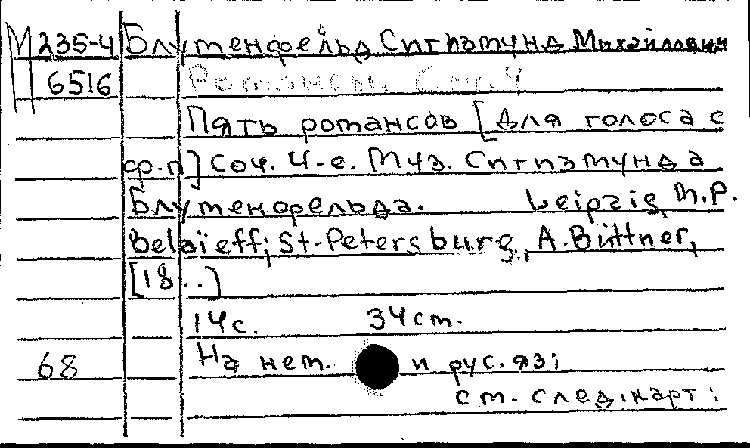 М 235-4 Блуменфельд Сигизмунд Михайлович
6516 Романсы. Соч. 4
Пять романсов [Для голоса с
ф.-п.] Соч. 4-е. Муз. Сигизмунда
Блуменфельда. Leipzig, M.P.
Belaïeff; St.-Petersburg, A. Büttner,
[18..]
14 с. 34 см.
68 На нем. и рус. яз;
см. след. карт: